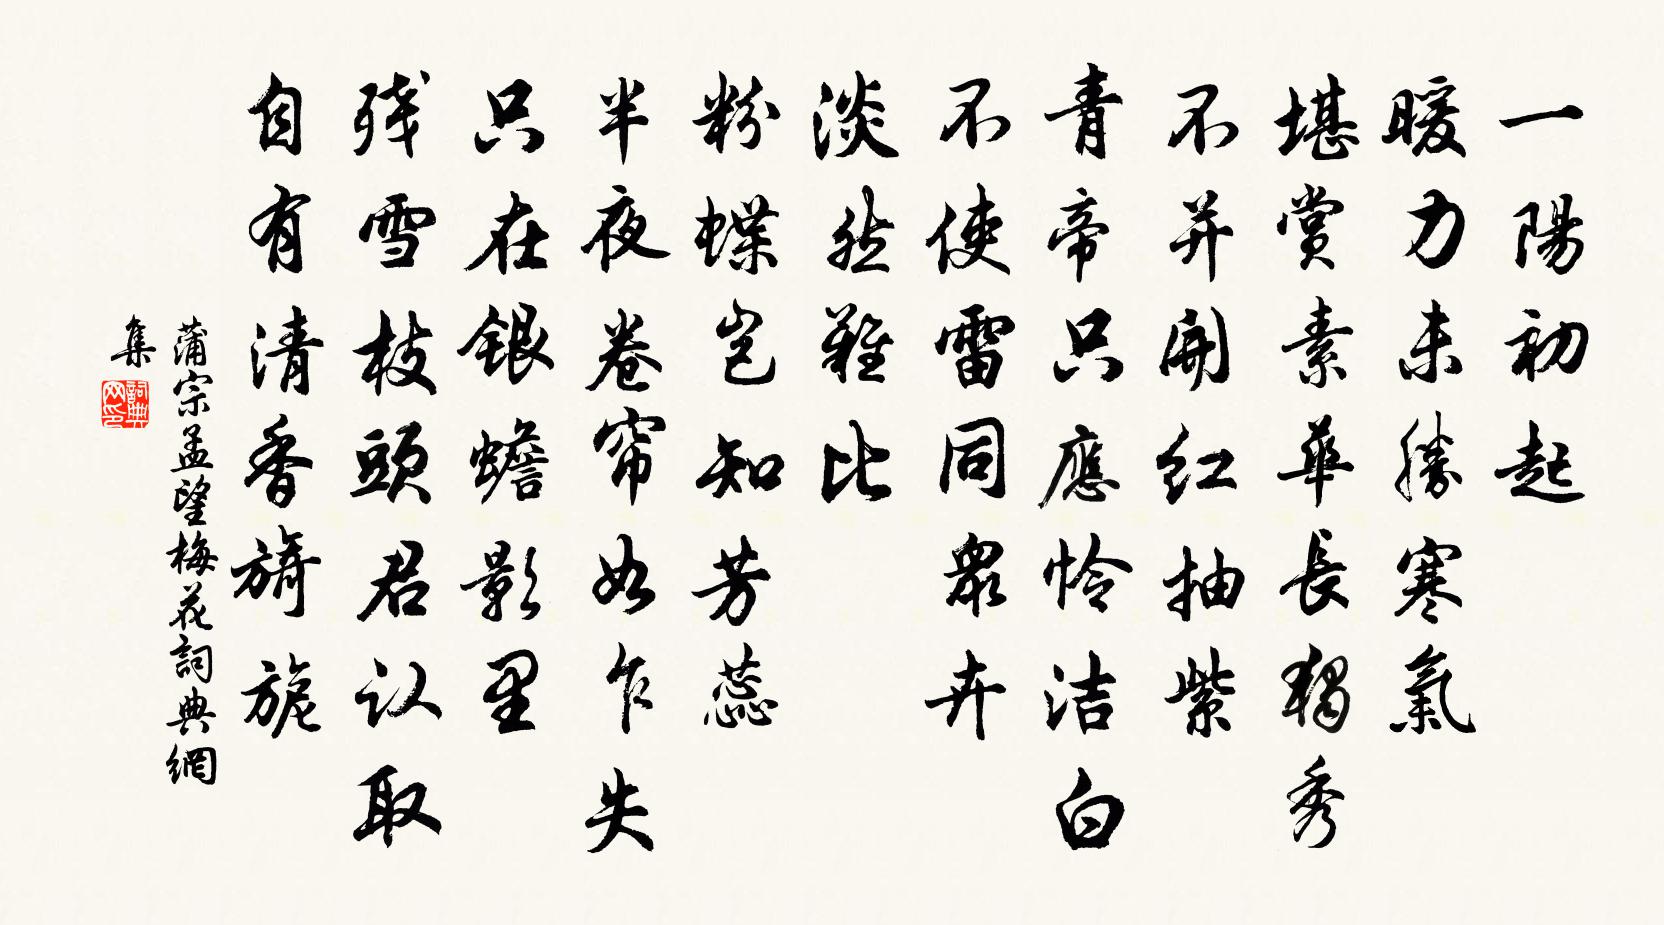 一陽初起
暖力未勝寒氣
堪賞素華長獨秀
不并開紅抽紫
青帝只應怜洁白
不使雷同眾卉
淡然難比
粉蝶豈知芳蕊
半夜卷帘如乍失
只在銀蟾影里
残雪枝頭君认取
自有清香旖旎
蒲宗孟望梅花詞典網
集
詞典
网印